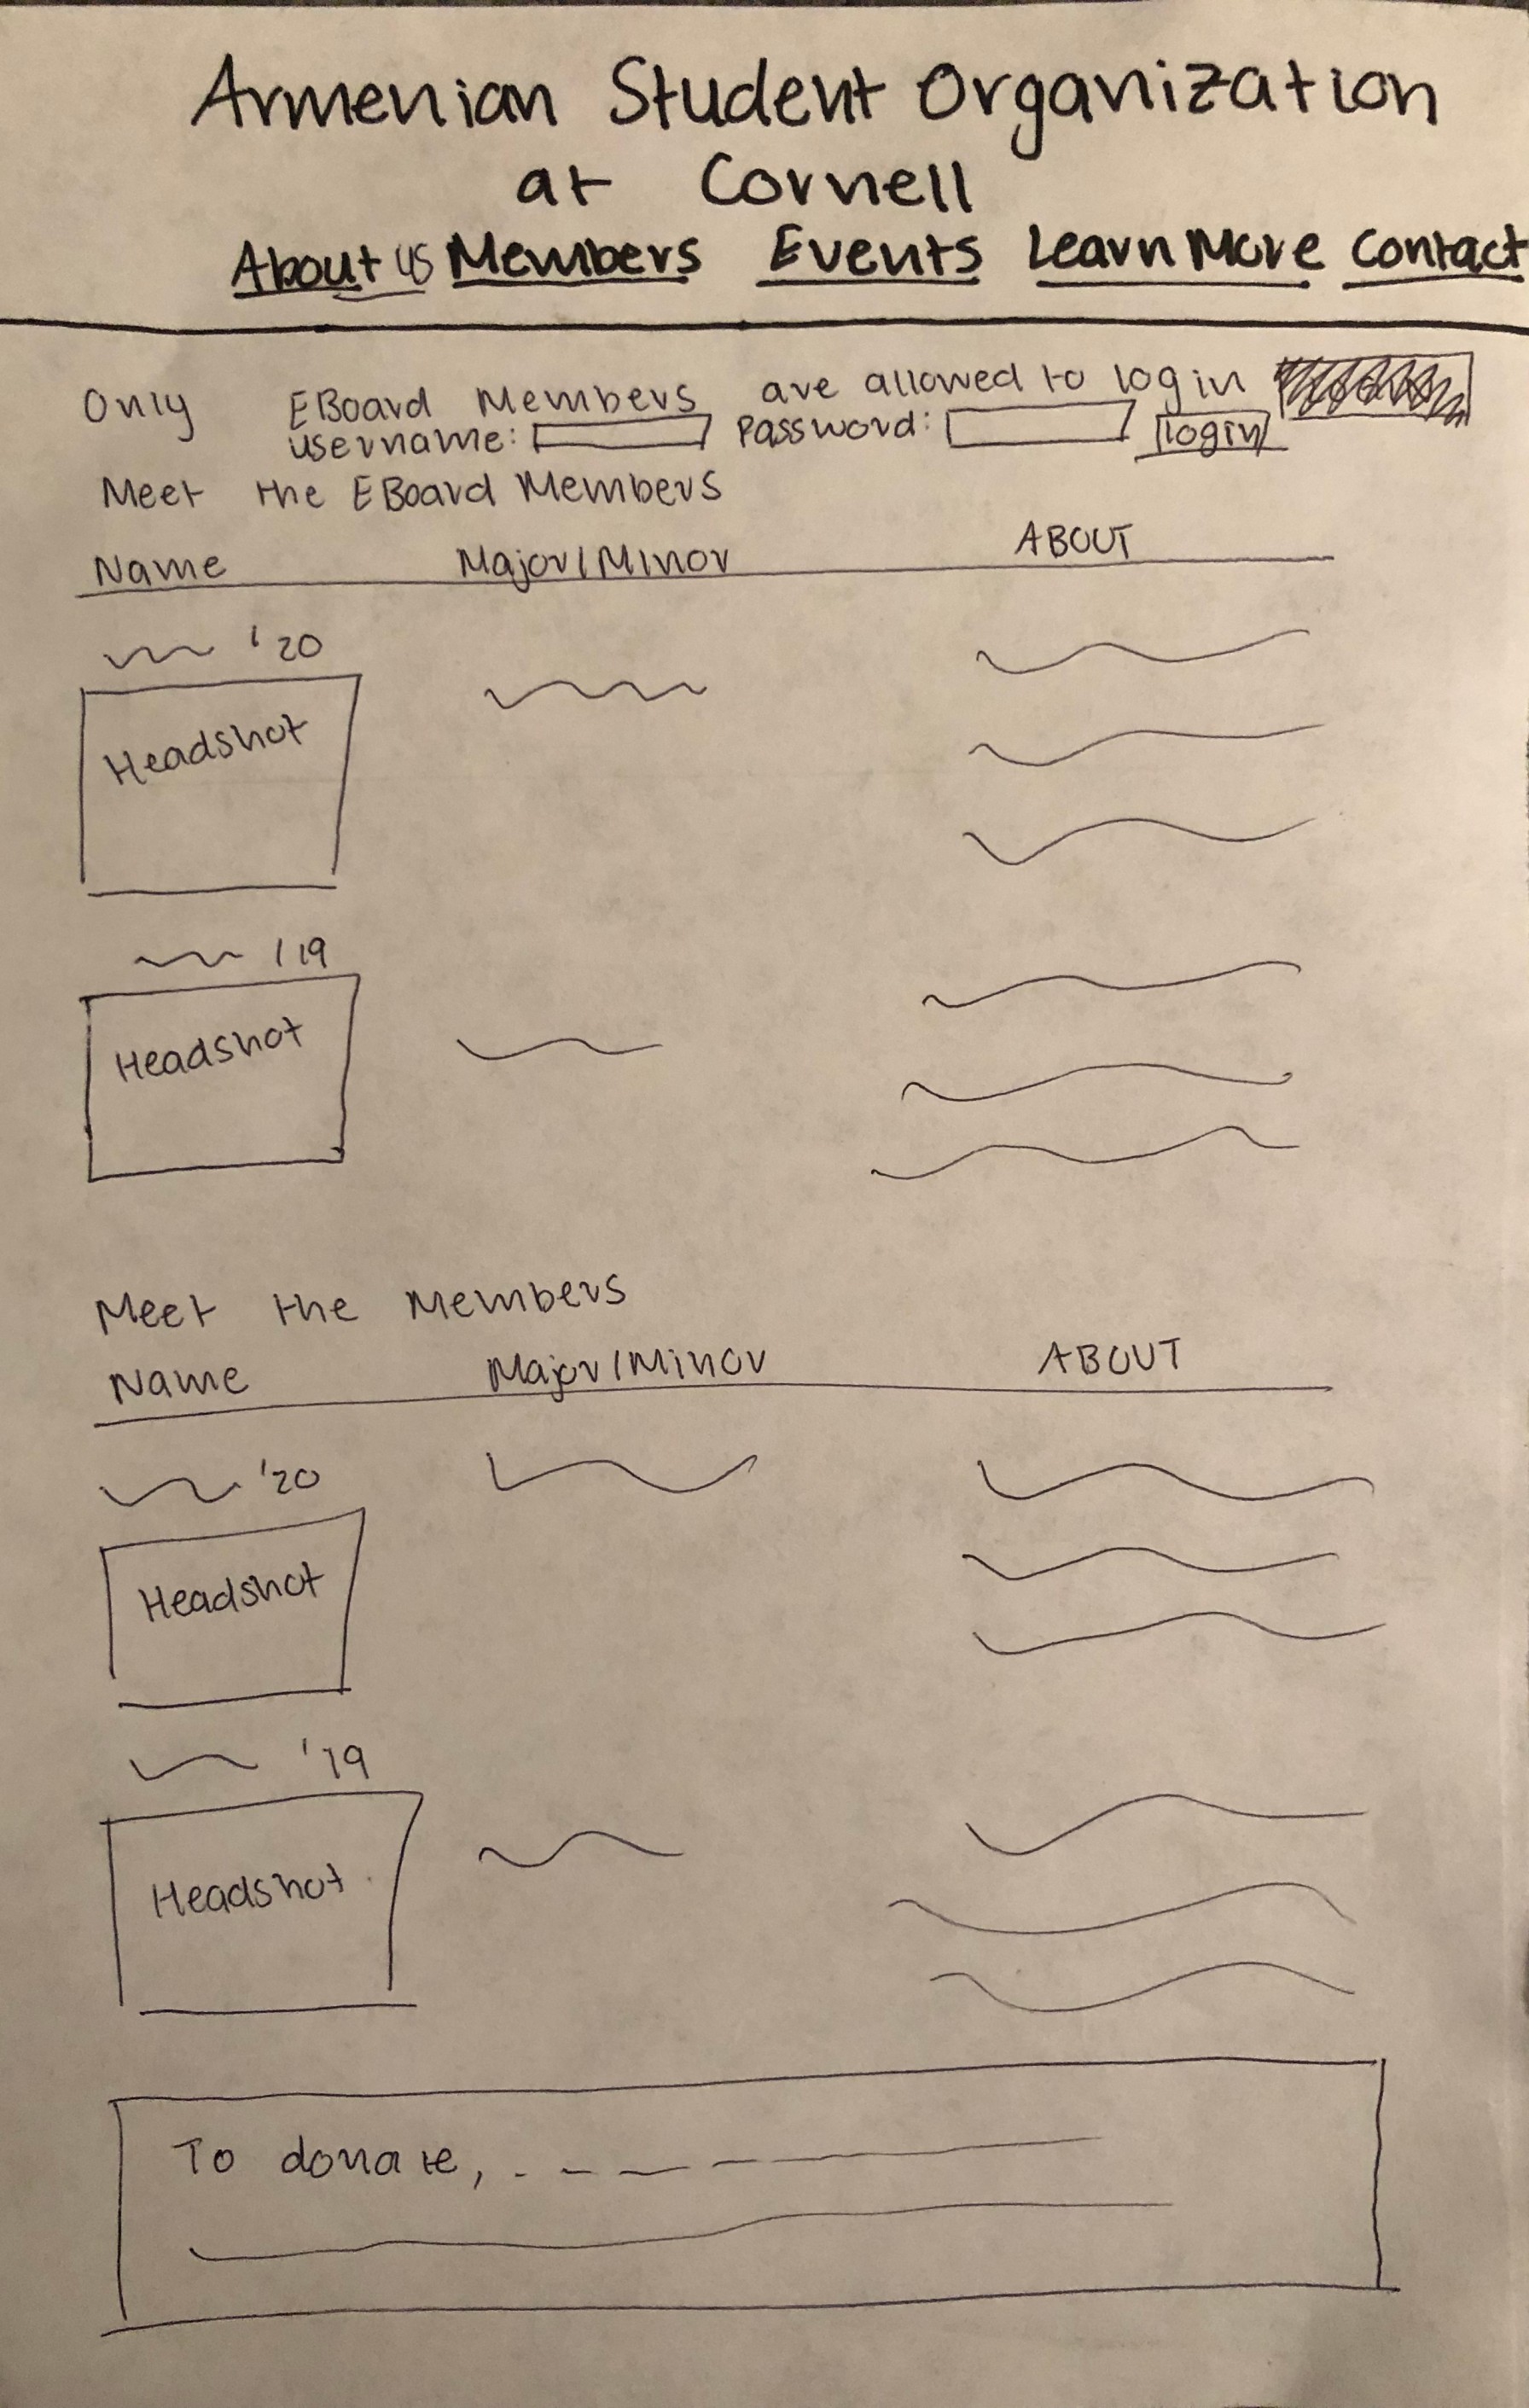 Armenian Student Organization
at Cornell
About us Members Events Learn More Contact
Only EBoard Members are allowed to log in
username: Password: login
Meet the EBoard Members
Name Major/Minor ABOUT
'20
Headshot
'19
Headshot
Meet the Members
Name Major/Minor ABOUT
'20
Headshot
'19
Headshot
To donate,